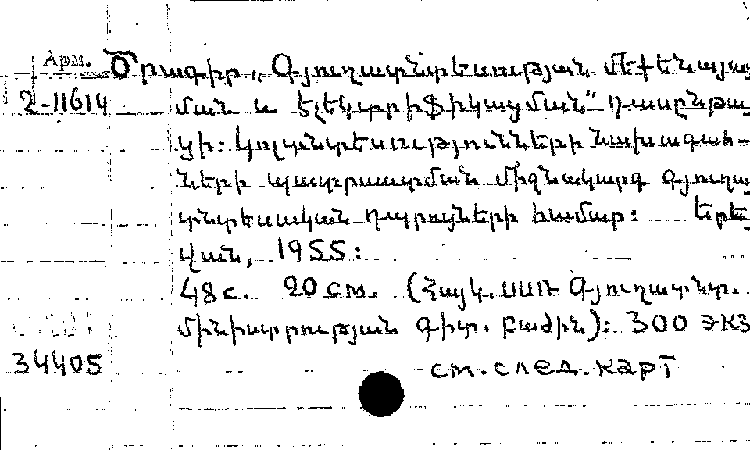 Арм. Ծրագիր „Գյուղատնտեսության մեքենայաց
2-11614 ման և էլեկտրիֆիկացման" դասընթա
ցի: Կոլտնտեսությունների նախագահ-
ների պատրաստման միջնակարգ գյուղա
տնտեսական դպրոցների համար: Երե
վան, 1955:
48 с. 20 см. (Հայկ. ՍՍՌ Գյուղատնտ.
մինիստրության Գիտ. բաժին): 300 экз
34405
см. след. карт